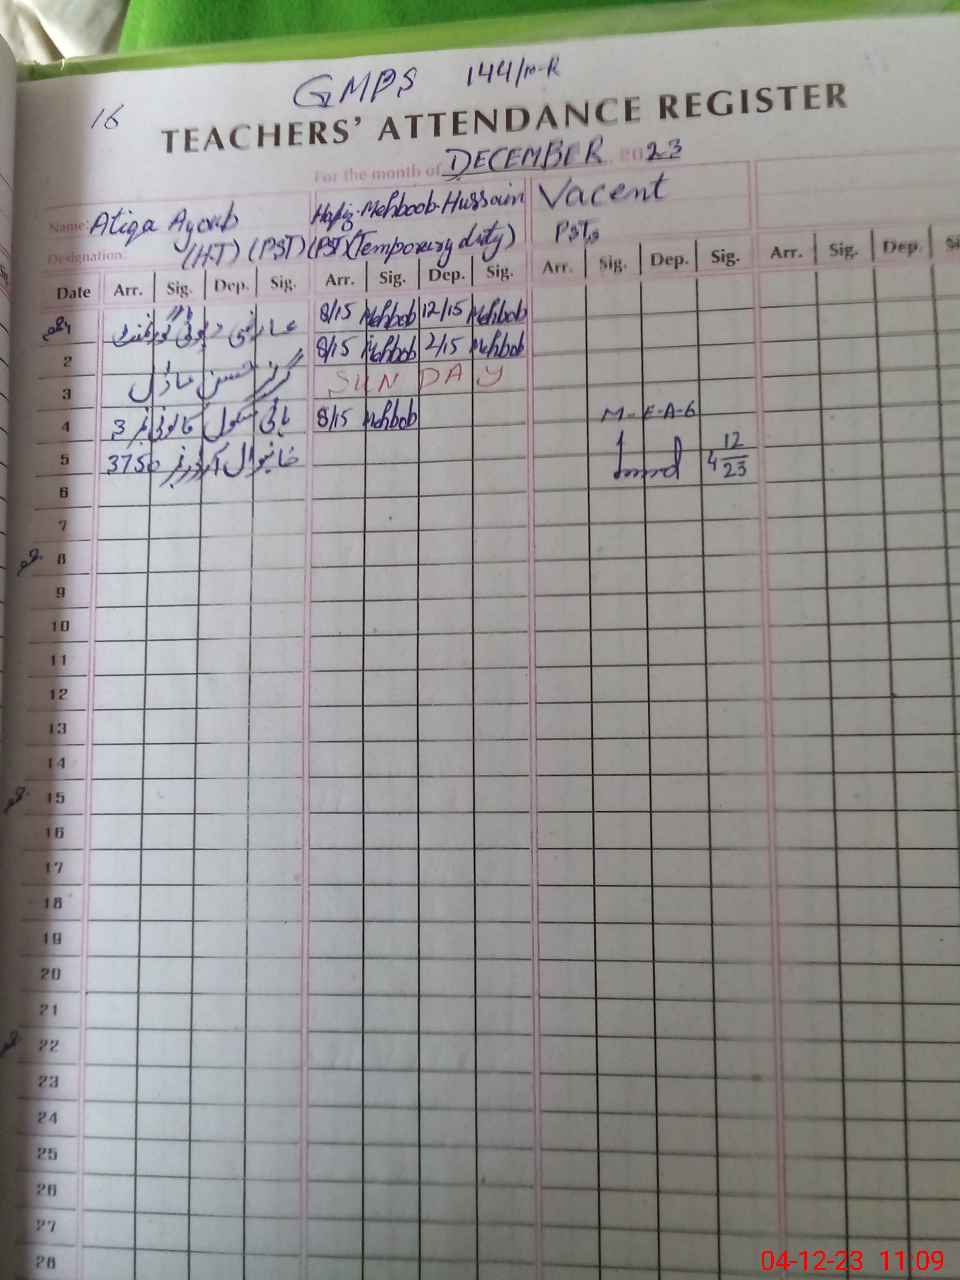 16 GMPS 144/m-R
TEACHERS' ATTENDANCE REGISTER
For the month of DECEMBER 2023
Name: Atiqa Ayoub Hafiz Mehboob Hussain Vacent
Designation: (H.T) (PST) (PST) (Temporary duty) PSTs
Date Arr. Sig. Dep. Sig. Arr. Sig. Dep. Sig. Arr. Sig. Dep. Sig. Arr. Sig. Dep.
1 عارضی ڈیوٹی گورنمنٹ 8/15 Mehbob 12/15 Mehbob
2 گرلز 8/15 Mehbob 2/15 Mehbob
3 ماڈل SUNDAY
4 ہائی سکول کالونی نمبر 3 8/15 Mehbob M-E-A-6
5 خانیوال آرڈر نمبر 3750 4 12/23
6
7
8
9
10
11
12
13
14
15
16
17
18
19
20
21
22
23
24
25
26
27
28
04-12-23 11:09